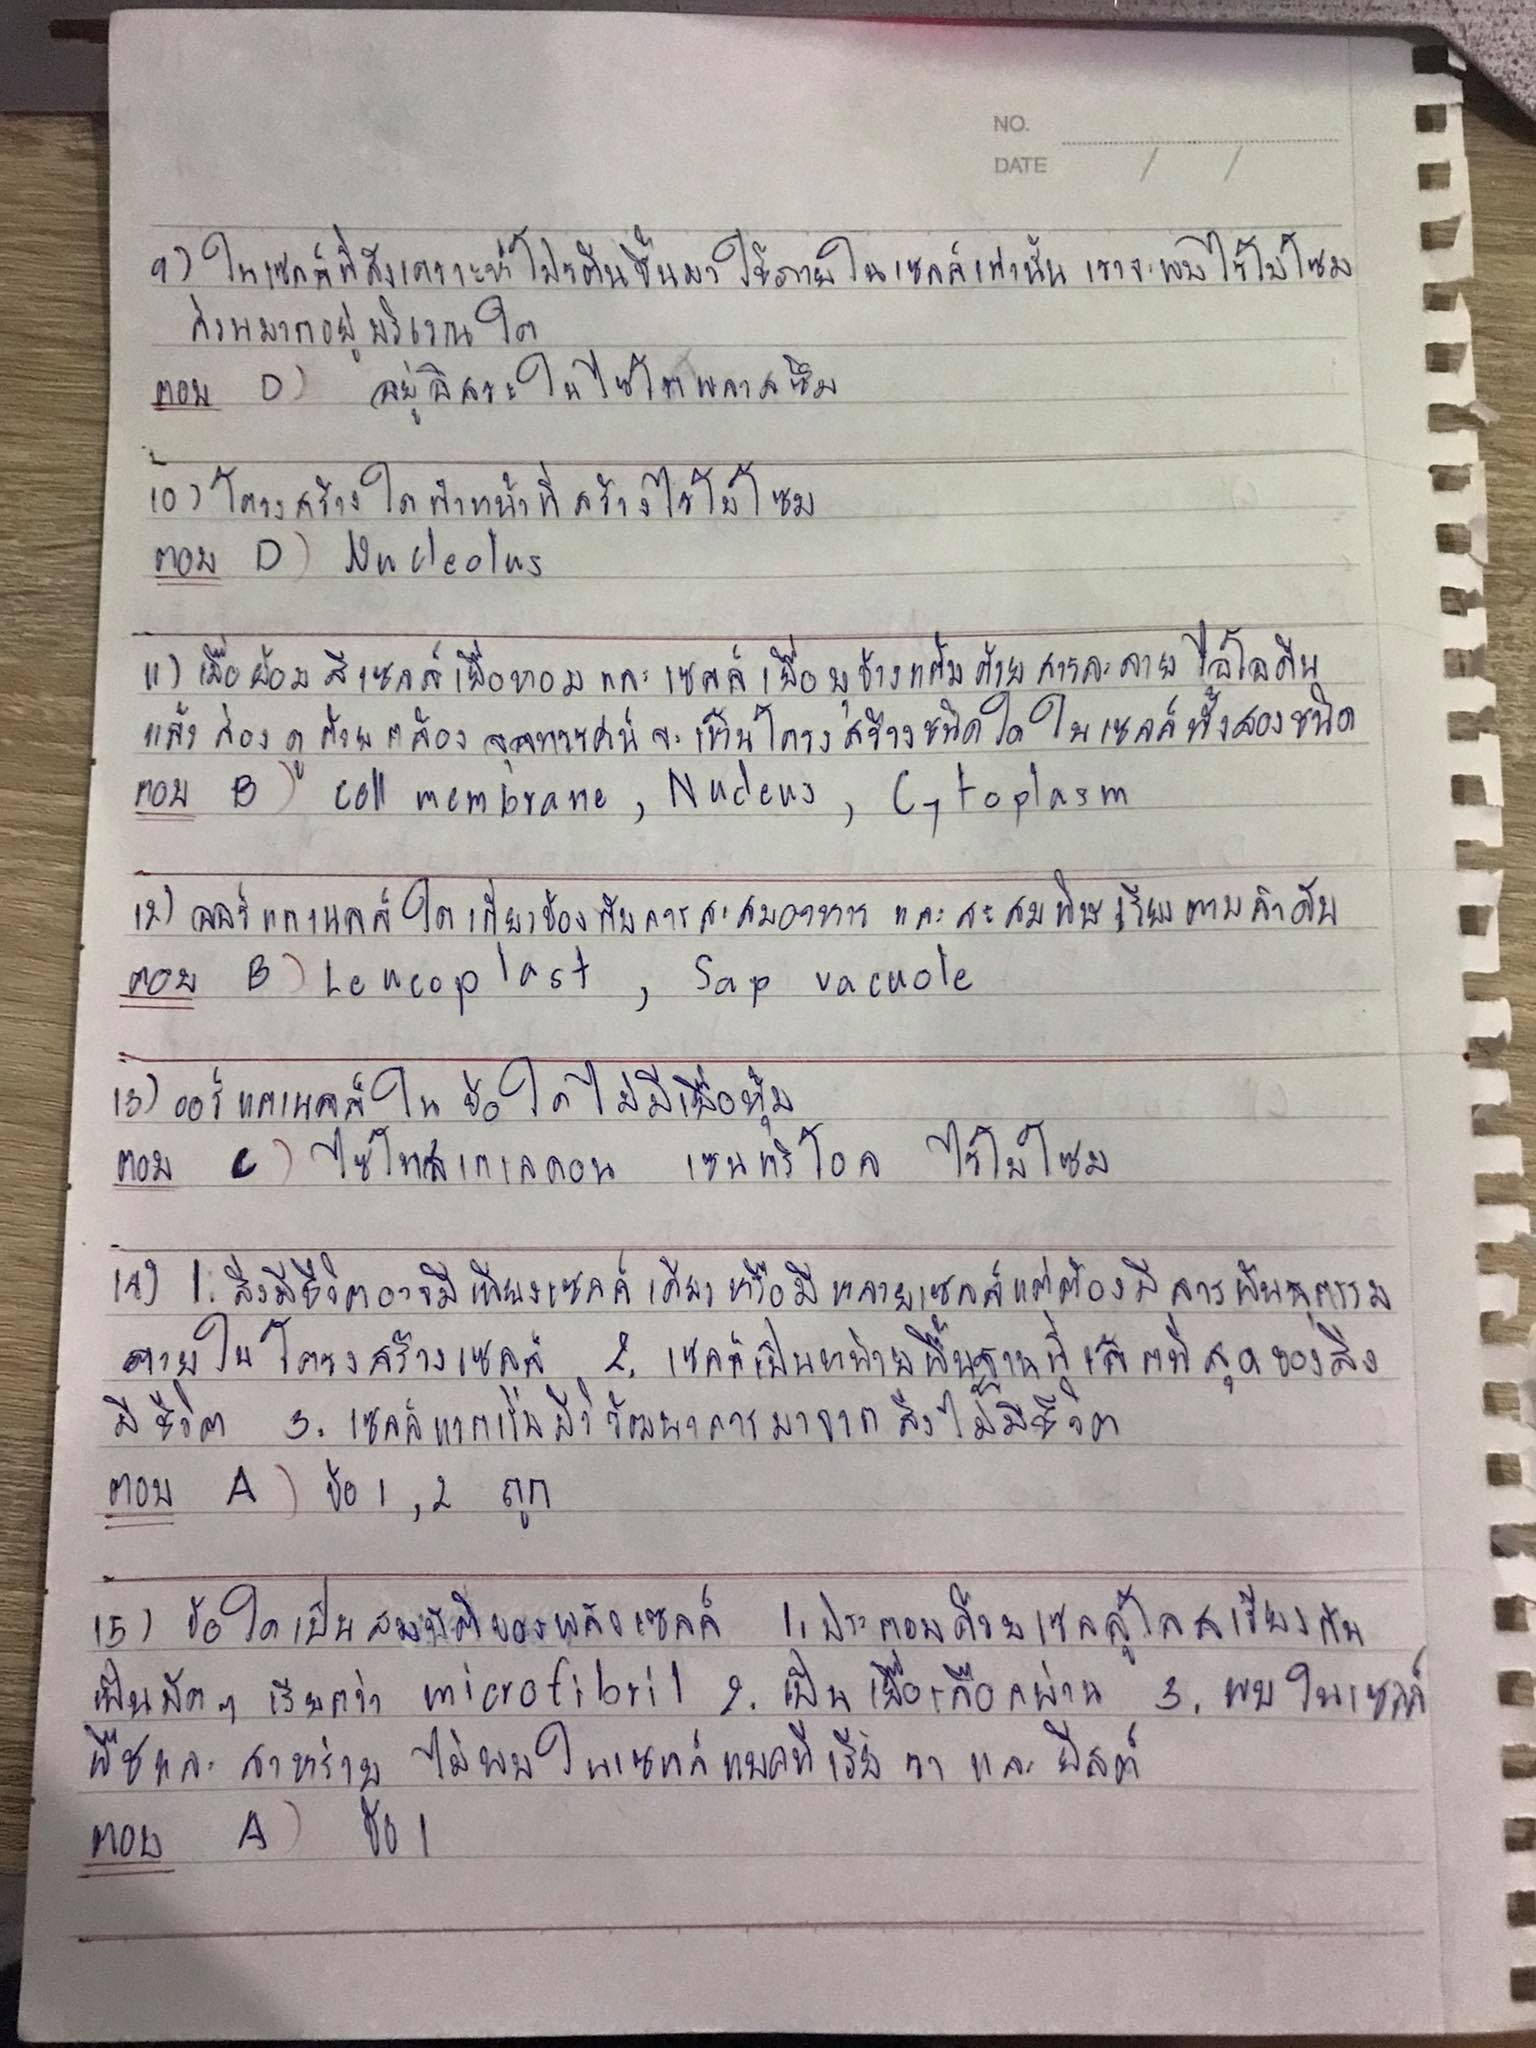 NO.
DATE / /
9) ในเซลล์ที่สังเคราะห์โปรตีนขึ้นมาใช้ภายในเซลล์เท่านั้น เราจะพบไรโบโซม
ส่วนมากอยู่บริเวณใด
ตอบ D) อยู่อิสระในไซโทพลาสซึม
10) โครงสร้างใดทำหน้าที่สร้างไรโบโซม
ตอบ D) Nucleolus
11) เมื่อย้อมสีเซลล์เยื่อหอมและเซลล์เยื่อบุข้างแก้มด้วยสารละลายไอโอดีน
แล้วส่องดูด้วยกล้องจุลทรรศน์จะเห็นโครงสร้างชนิดใดในเซลล์ทั้งสองชนิด
ตอบ B) cell membrane, Nucleus, Cytoplasm
12) ออร์แกเนลล์ใดเกี่ยวข้องกับการสะสมอาหาร และสะสมพิษเรียงตามลำดับ
ตอบ B) Leucoplast, Sap vacuole
13) ออร์แกเนลล์ในข้อใดไม่มีเยื่อหุ้ม
ตอบ C) ไซโทสเกเลตอน เซนทริโอล ไรโบโซม
14) 1. สิ่งมีชีวิตอาจมีเพียงเซลล์เดียวหรือมีหลายเซลล์แต่ต้องมีสารพันธุกรรม
ภายในโครงสร้างเซลล์ 2. เซลล์เป็นหน่วยพื้นฐานที่เล็กที่สุดของสิ่ง
มีชีวิต 3. เซลล์แรกเริ่มมีวิวัฒนาการมาจากสิ่งไม่มีชีวิต
ตอบ A) ข้อ 1, 2 ถูก
15) ข้อใดเป็นสมบัติของผนังเซลล์ 1. ประกอบด้วยเซลลูโลสเรียงกัน
เป็นมัดๆ เรียกว่า microfibril 2. เป็นเยื่อเลือกผ่าน 3. พบในเซลล์
พืชและสาหร่าย ไม่พบในเซลล์แบคทีเรีย รา และยีสต์
ตอบ A) ข้อ 1